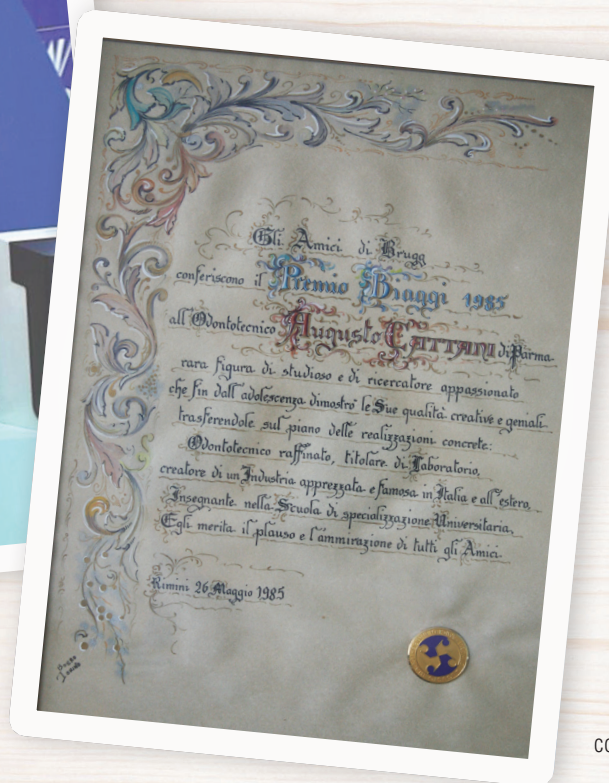 Gli Amici di Brugg
conferiscono il Premio Biaggi 1985
all'Odontotecnico Augusto CATTANI di Parma
rara figura di studioso e di ricercatore appassionato
che fin dall'adolescenza dimostrò le Sue qualità creative e geniali
trasferendole sul piano delle realizzazioni concrete.
Odontotecnico raffinato, titolare di Laboratorio,
creatore di un'Industria apprezzata e famosa in Italia e all'estero,
Insegnante nella Scuola di specializzazione Universitaria,
Egli merita il plauso e l'ammirazione di tutti gli Amici.
Rimini 26 Maggio 1985
CO